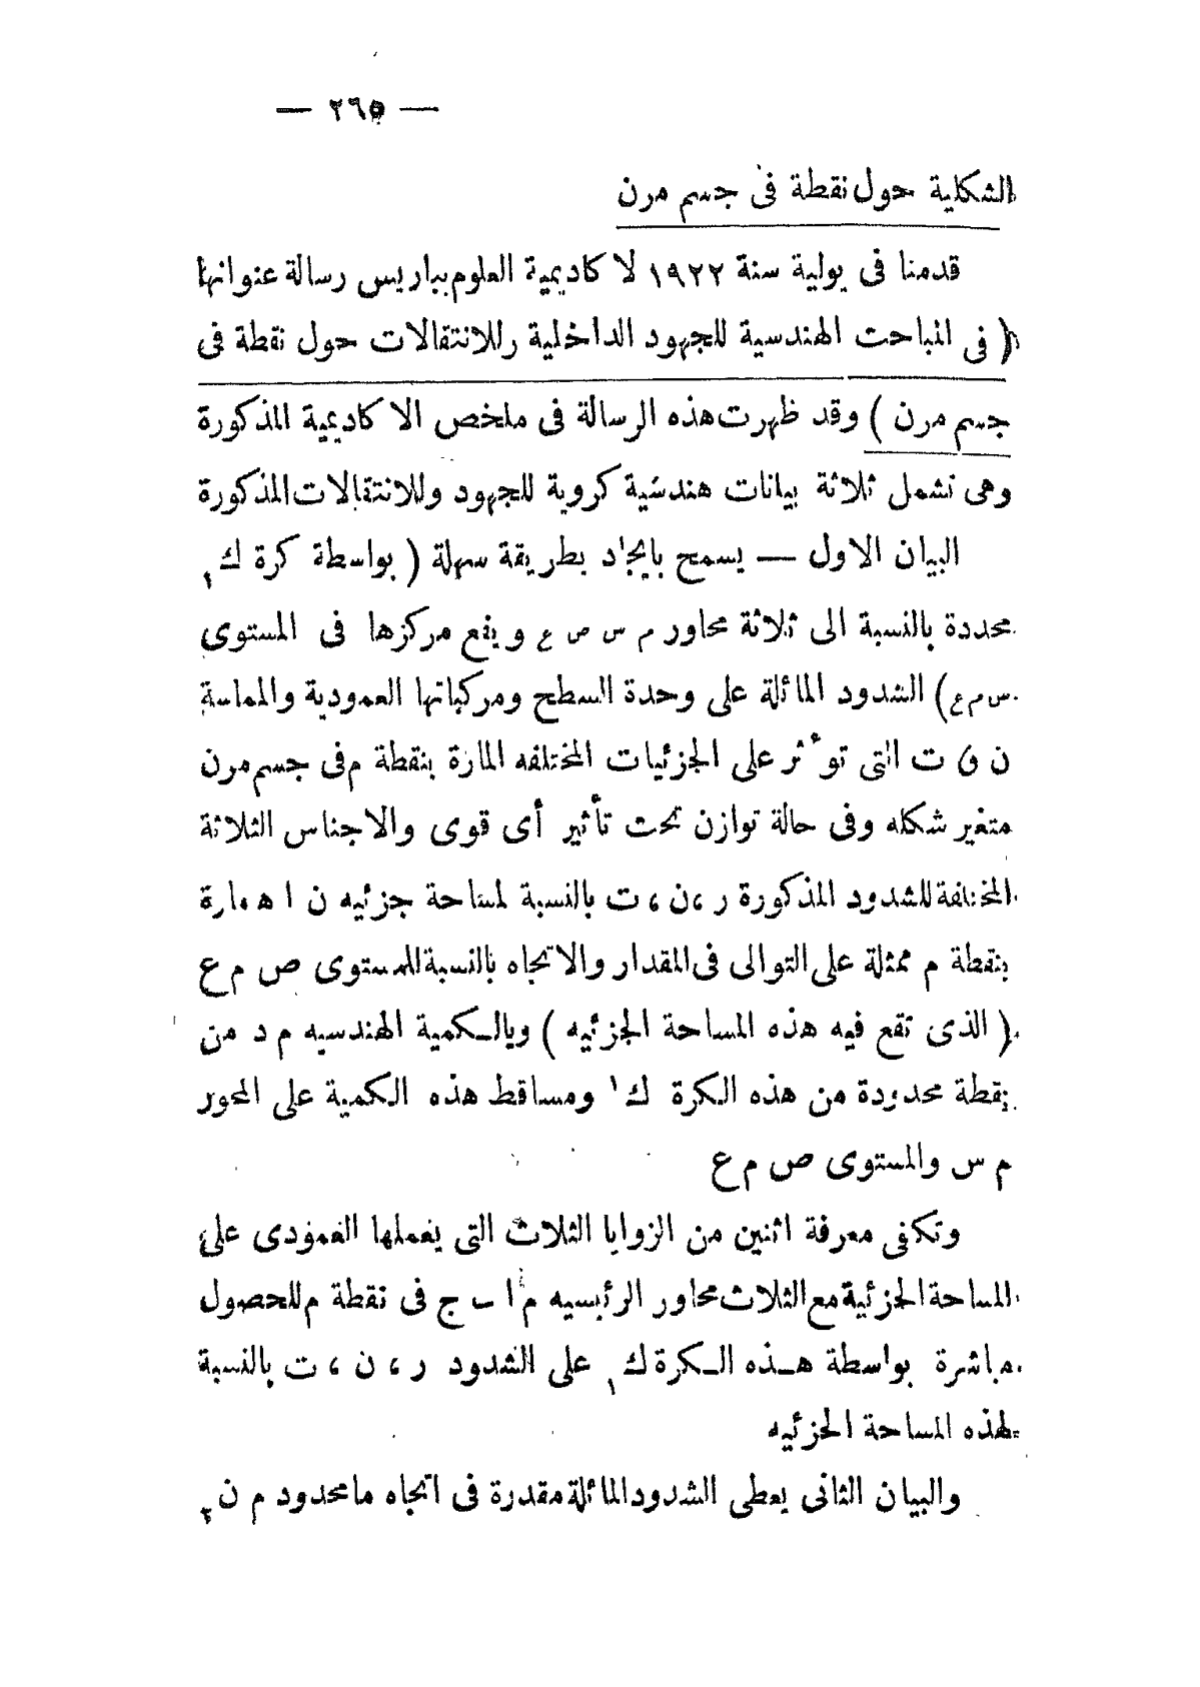 — ٢٦٥ —
الشكلية حول نقطة فى جسم مرن
قدمنا فى يولية سنة ١٩٢٢ لا كاديمية العلوم بباريس رسالة عنوانها
( فى المباحث الهندسية للجهود الداخلية وللانتقالات حول نقطة فى
جسم مرن ) وقد ظهرت هذه الرسالة فى ملخص الا كاديمية المذكورة
وهى تشمل ثلاثة بيانات هندسية كروية للجهود وللانتقالات المذكورة
البيان الاول — يسمح بايجاد بطريقة سهلة ( بواسطة كرة ك١
محددة بالنسبة الى ثلاثة محاور م س ص ع ويقع مركزها فى المستوى
س م ع ) الشدود المائلة على وحدة السطح ومركباتها العمودية والمماسة
ن ق ت التى تو ثر على الجزئيات المختلفه المارة بنقطة م فى جسم مرن
متغير شكله وفى حالة توازن تحت تأثير أى قوى والاجناس الثلاثة
المختلفة للشدود المذكورة ر ، ن ، ت بالنسبة لمساحة جزئيه ن ا ه مارة
بنقطة م ممثلة على التوالى فى المقدار والاتجاه بالنسبة للمستوى ص م ع
( الذى تقع فيه هذه المساحة الجزئيه ) وبالكمية الهندسيه م د من
نقطة محدودة من هذه الكرة ك١ ومساقط هذه الكمية على المحور
م س والمستوى ص م ع
وتكفى معرفة اثنين من الزوايا الثلاث التى يعملها العمودى على
المساحة الجزئية مع الثلاث محاور الرئيسيه م ا ب ج فى نقطة م للحصول
مباشرة بواسطة هذه الكرة ك١ على الشدود ر ، ن ، ت بالنسبة
لهذه المساحة الجزئيه
والبيان الثانى يعطى الشدود المائلة مقدرة فى اتجاه ما محدود م ن٢